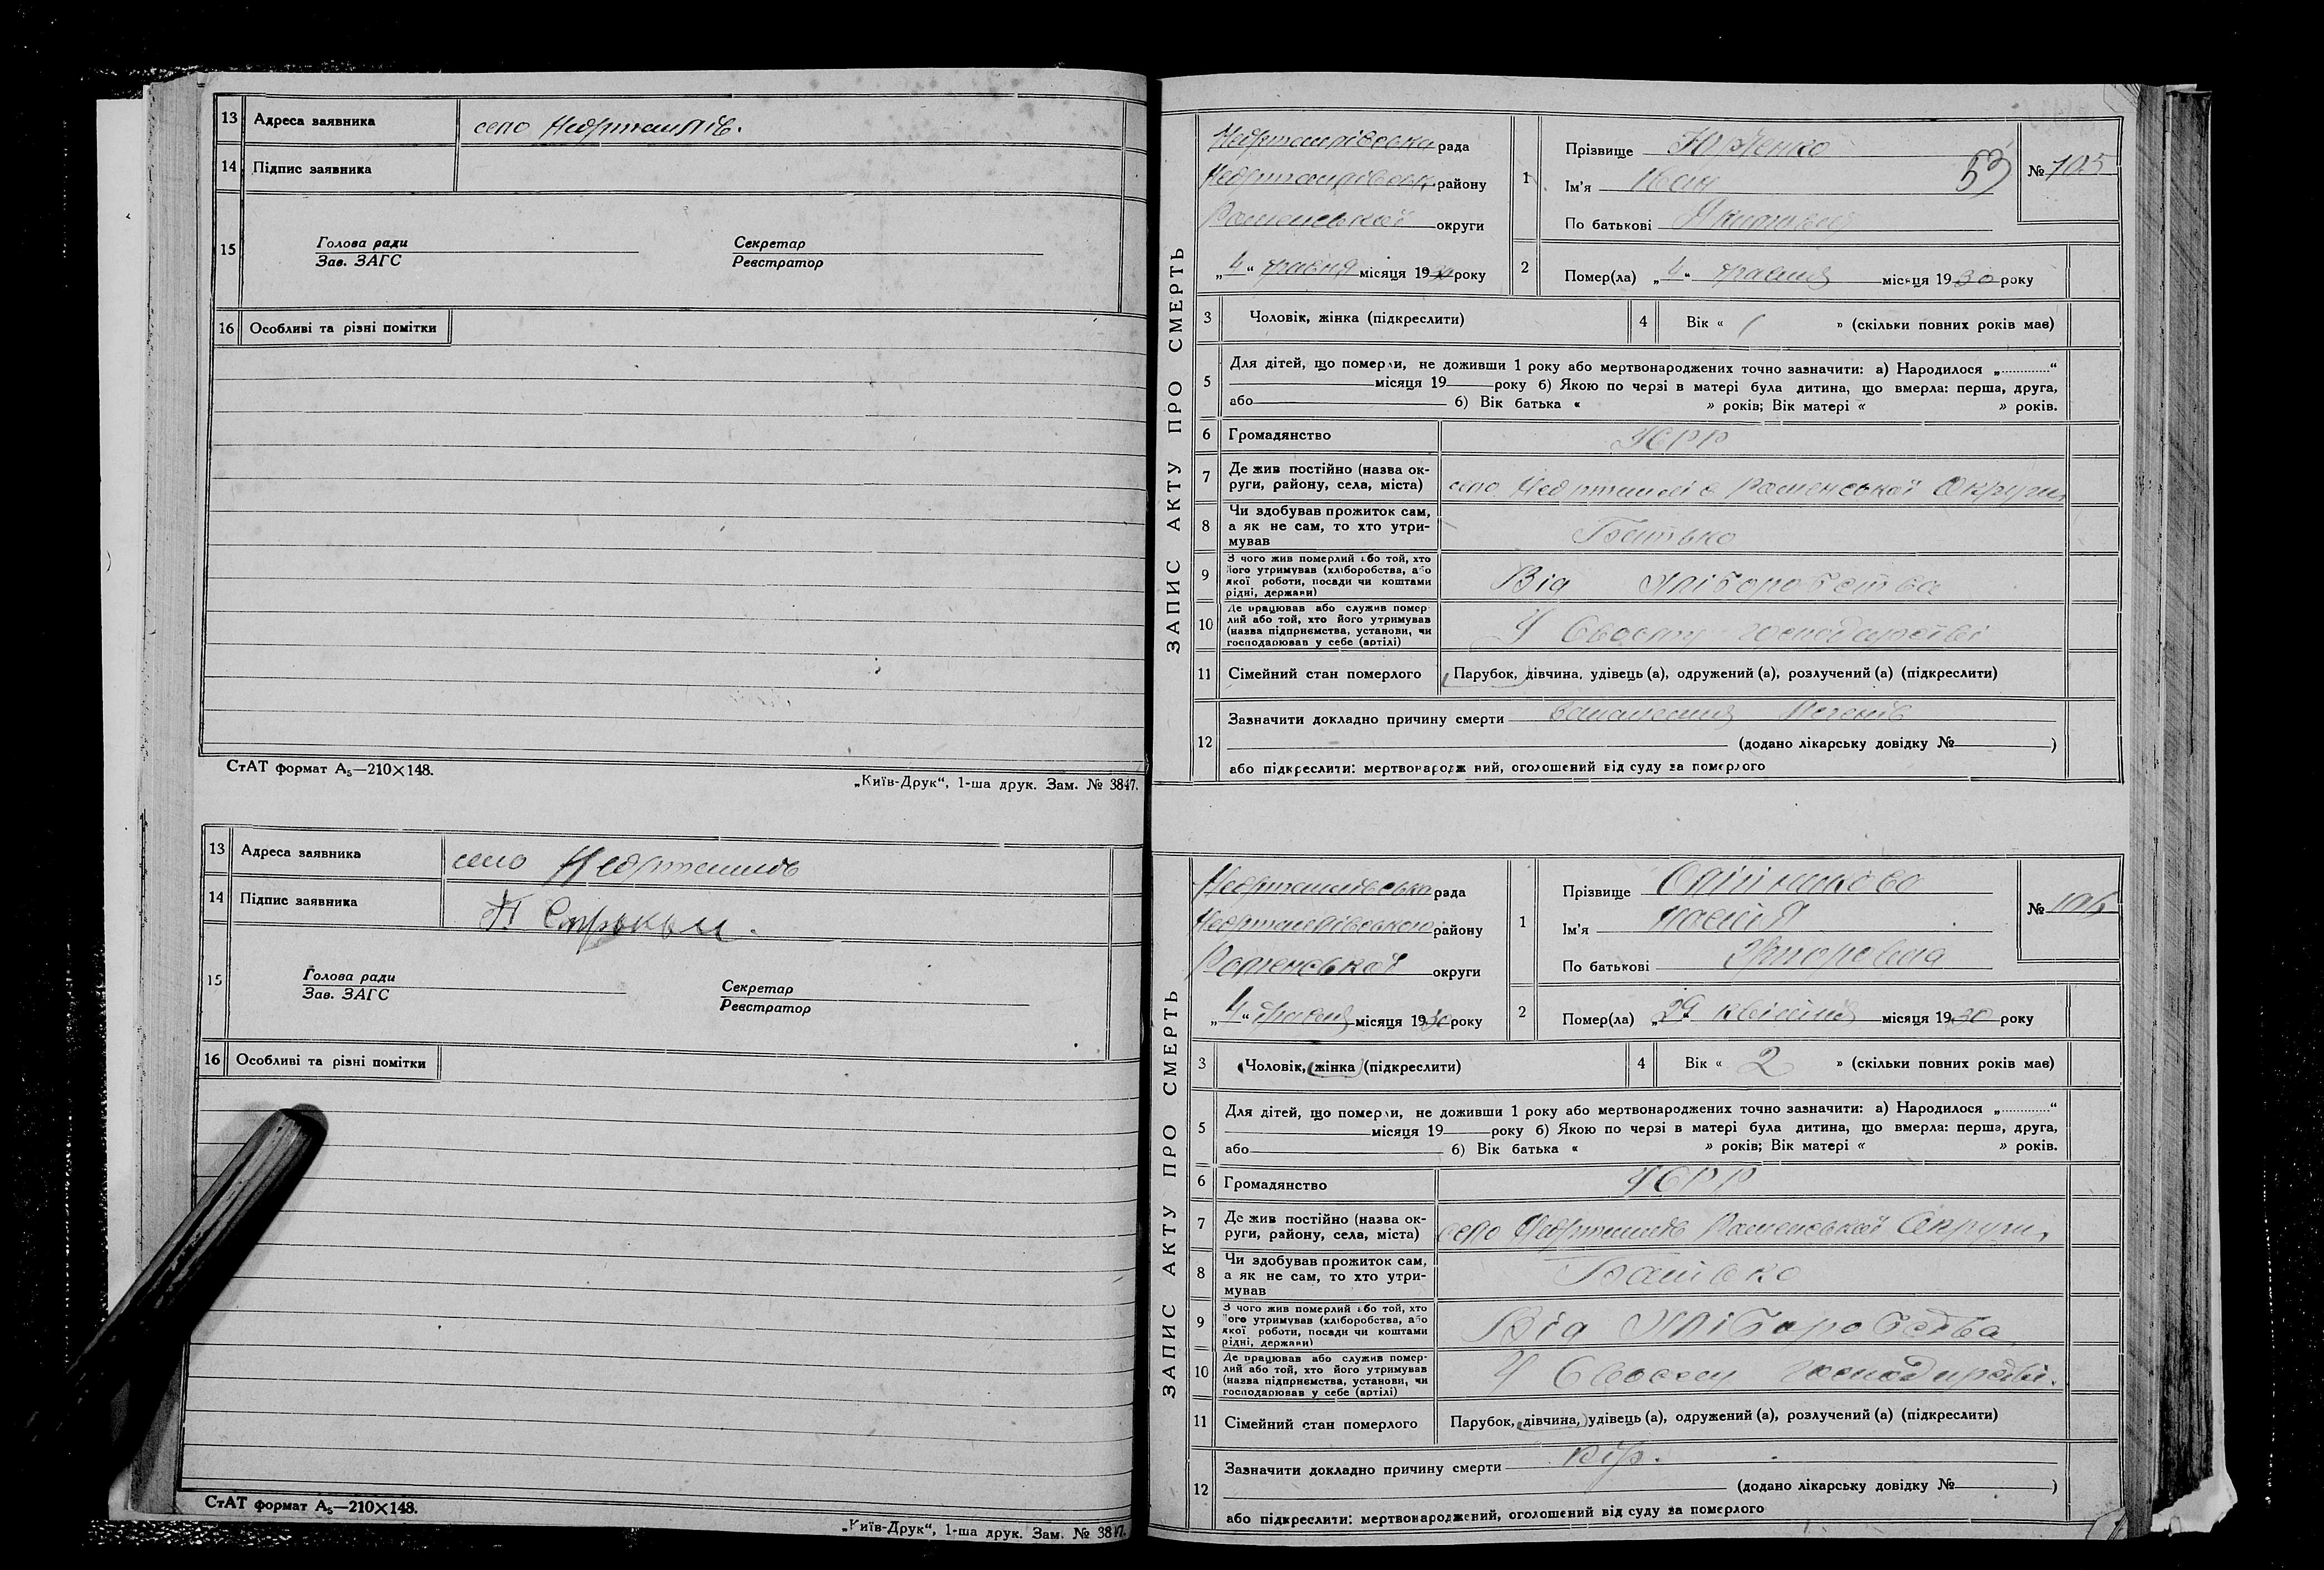 13 Адреса заявника село Недригайлів.
14 Підпис заявника
15 Голова ради Секретар
Зав. ЗАГС Реєстратор
16 Особливі та різні помітки
СтАТ формат А₅—210×148.
„Київ-Друк“, 1-ша друк. Зам. № 3847.
13 Адреса заявника село Недригайлів
14 Підпис заявника
15 Голова ради Секретар
Зав. ЗАГС Реєстратор
16 Особливі та різні помітки
СтАТ формат А₅—210×148.
„Київ-Друк“, 1-ша друк. Зам. № 3847.
ЗАПИС АКТУ ПРО СМЕРТЬ
Недригайлівська рада
Недригайлівськ. району
Роменської округи
„4“ травня місяця 1930 року
1 Прізвище Юрченко
Ім'я Іван 53
По батькові
№ 105
2 Помер(ла) „4“ травня місяця 1930 року
3 Чоловік, жінка (підкреслити)
4 Вік « 1 » (скільки повних років має)
5 Для дітей, що померли, не доживши 1 року або мертвонароджених точно зазначити: а) Народилося „............“
місяця 19 року б) Якою по черзі в матері була дитина, що вмерла: перша, друга,
або б) Вік батька « » років; Вік матері « » років.
6 Громадянство УСРР
7 Де жив постійно (назва ок-
руги, району, села, міста) село Недригайлів Роменської Округи
8 Чи здобував прожиток сам,
а як не сам, то хто утри-
мував Батько
9 З чого жив померлий або той, хто
його утримував (хліборобства, або
якої роботи, посади чи коштами
рідні, держави) Від хліборобства
10 Де працював або служив помер-
лий або той, хто його утримував
(назва підприємства, установи, чи
господарював у себе (артілі) У своєму господарстві
11 Сімейний стан померлого Парубок, дівчина, удівець (а), одружений (а), розлучений (а) (підкреслити)
12 Зазначити докладно причину смерти Запалення Легенів
(додано лікарську довідку № )
або підкреслити: мертвонароджений, оголошений від суду за померлого
ЗАПИС АКТУ ПРО СМЕРТЬ
Недригайлівська рада
Недригайлівської району
Роменської округи
„4“ травня місяця 1930 року
1 Прізвище
Ім'я
По батькові
№ 106
2 Помер(ла) „29“ квітня місяця 1930 року
3 Чоловік, жінка (підкреслити)
4 Вік « 2 » (скільки повних років має)
5 Для дітей, що померли, не доживши 1 року або мертвонароджених точно зазначити: а) Народилося „............“
місяця 19 року б) Якою по черзі в матері була дитина, що вмерла: перша, друга,
або б) Вік батька « » років; Вік матері « » років.
6 Громадянство УСРР
7 Де жив постійно (назва ок-
руги, району, села, міста) село Недригайлів Роменської Округи
8 Чи здобував прожиток сам,
а як не сам, то хто утри-
мував Батько
9 З чого жив померлий або той, хто
його утримував (хліборобства, або
якої роботи, посади чи коштами
рідні, держави) Від хліборобства
10 Де працював або служив помер-
лий або той, хто його утримував
(назва підприємства, установи, чи
господарював у себе (артілі) У своєму господарстві.
11 Сімейний стан померлого Парубок, дівчина, удівець (а), одружений (а), розлучений (а) (підкреслити)
12 Зазначити докладно причину смерти Кір.
(додано лікарську довідку № )
або підкреслити: мертвонароджений, оголошений від суду за померлого